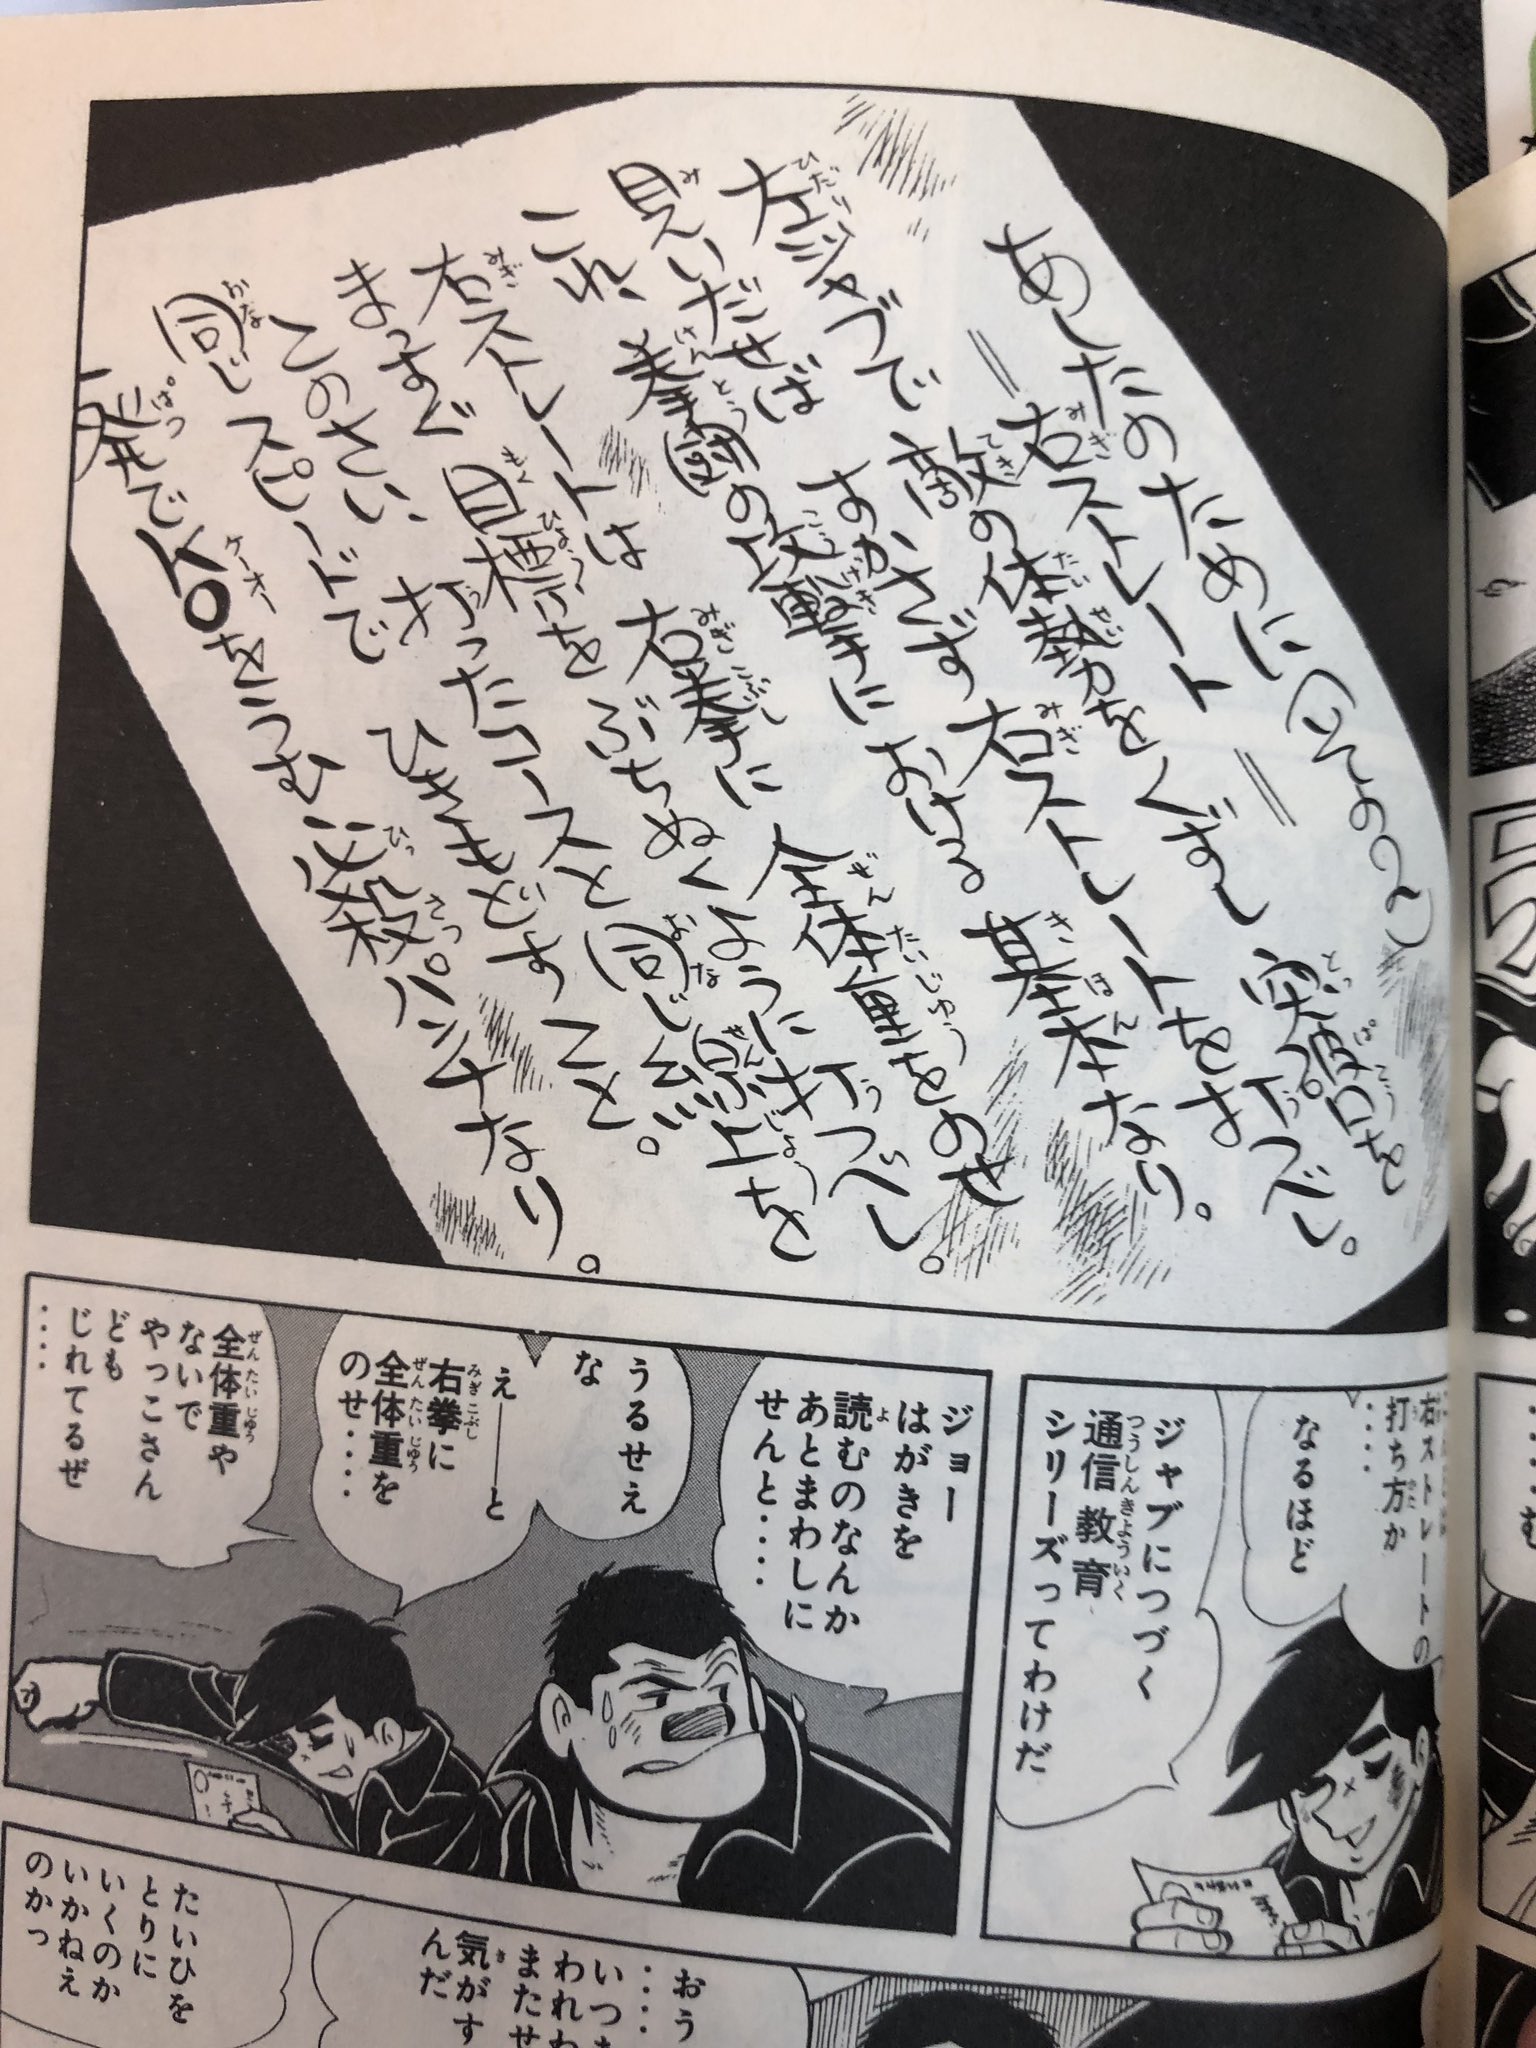 あしたのために(その2)
＝右ストレート＝
左ジャブで敵の体勢をくずし突破口を
見いだせばすかさず右ストレートをはなつべし。
これ、拳闘の攻撃における基本なり。
右ストレートは右拳に全体重をのせ
まっすぐ目標をぶちぬくように打つべし。
このさい打ったコースと同じ線上を
同じスピードでひきもどすこと。
一発でK.Oをうむ必殺パンチなり。
右ストレートの
打ち方か
‥‥
なるほど
ジャブにつづく
通信教育
シリーズってわけだ
ジョー
はがきを
読むのなんか
あとまわしに
せんと‥‥
うるせえ
な
え——と
右拳に
全体重を
のせ‥‥
全体重や
ないで
やっこさん
ども
じれてるぜ
‥‥
おう
‥‥
いつ
われわ
またせ
気がす
んだ
たいひを
とりに
いくのか
いかねえ
のかっ